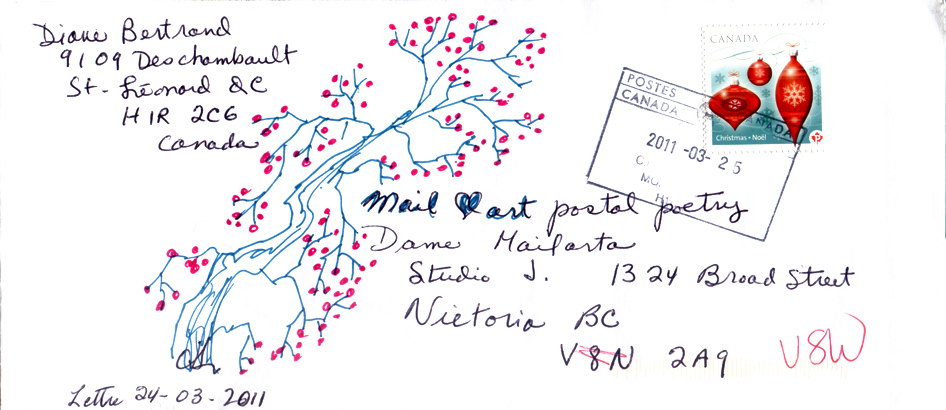 Diane Bertrand
9109 Deschambault
St-Léonard QC
H1R 2C6
Canada
CANADA
Christmas • Noël
P
POSTES
CANADA
CANADA
2011-03-25
Mail art postal poetry
Dame Mailarta
Studio J. 1324 Broad Street
Victoria BC
V8N 2A9 V8W
Lettre 24-03-2011